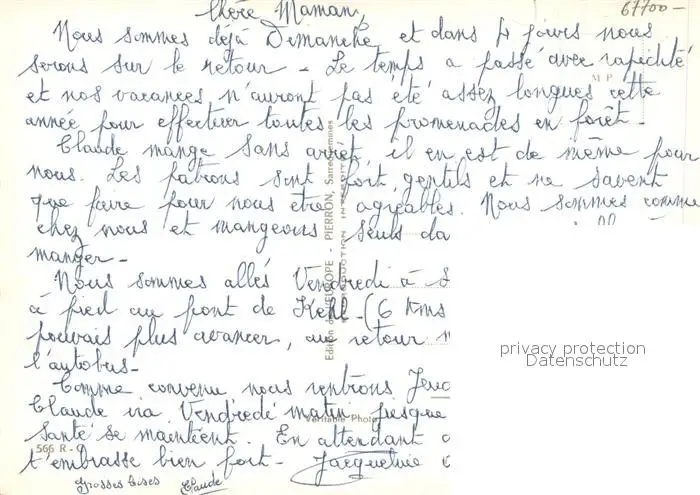 67700-
Chère Maman,
Nous sommes déjà Dimanche et dans 4 jours nous
serons sur le retour - Le temps a passé avec rapidité
M P
et nos vacances n'auront pas été assez longues cette
année pour effectuer toutes les promenades en forêt -
Claude mange sans arrêt, il en est de même pour
nous. Les patrons sont fort gentils et ne savent
que faire pour nous être agréables. Nous sommes comme
chez nous et mangeons seuls da
manger -
Nous sommes allés Vendredi à S
à pied au pont de Kehl - (6 Kms
pouvais plus avancer, au retour
l'autobus -
Comme convenu nous rentrons Jeud
Claude ira Vendredi matin presque
santé se maintient. En attendant
t'embrasse bien fort - Jacqueline
Grosses bises Claude
566 R -
Véritable Photo
PIERRON, Sarreguemines
privacy protection
Datenschutz